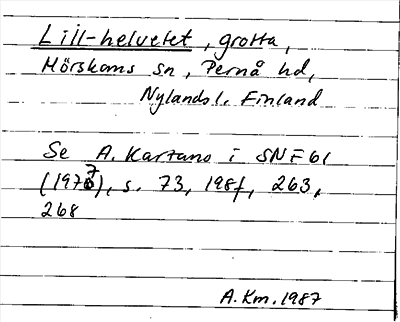 Lill-helvetet, grotta,
Mörskoms sn, Pernå hd,
Nylands l. Finland
Se A. Kartano i SNF 61
(1973), s. 73, 198f, 263,
268
A. Km. 1987